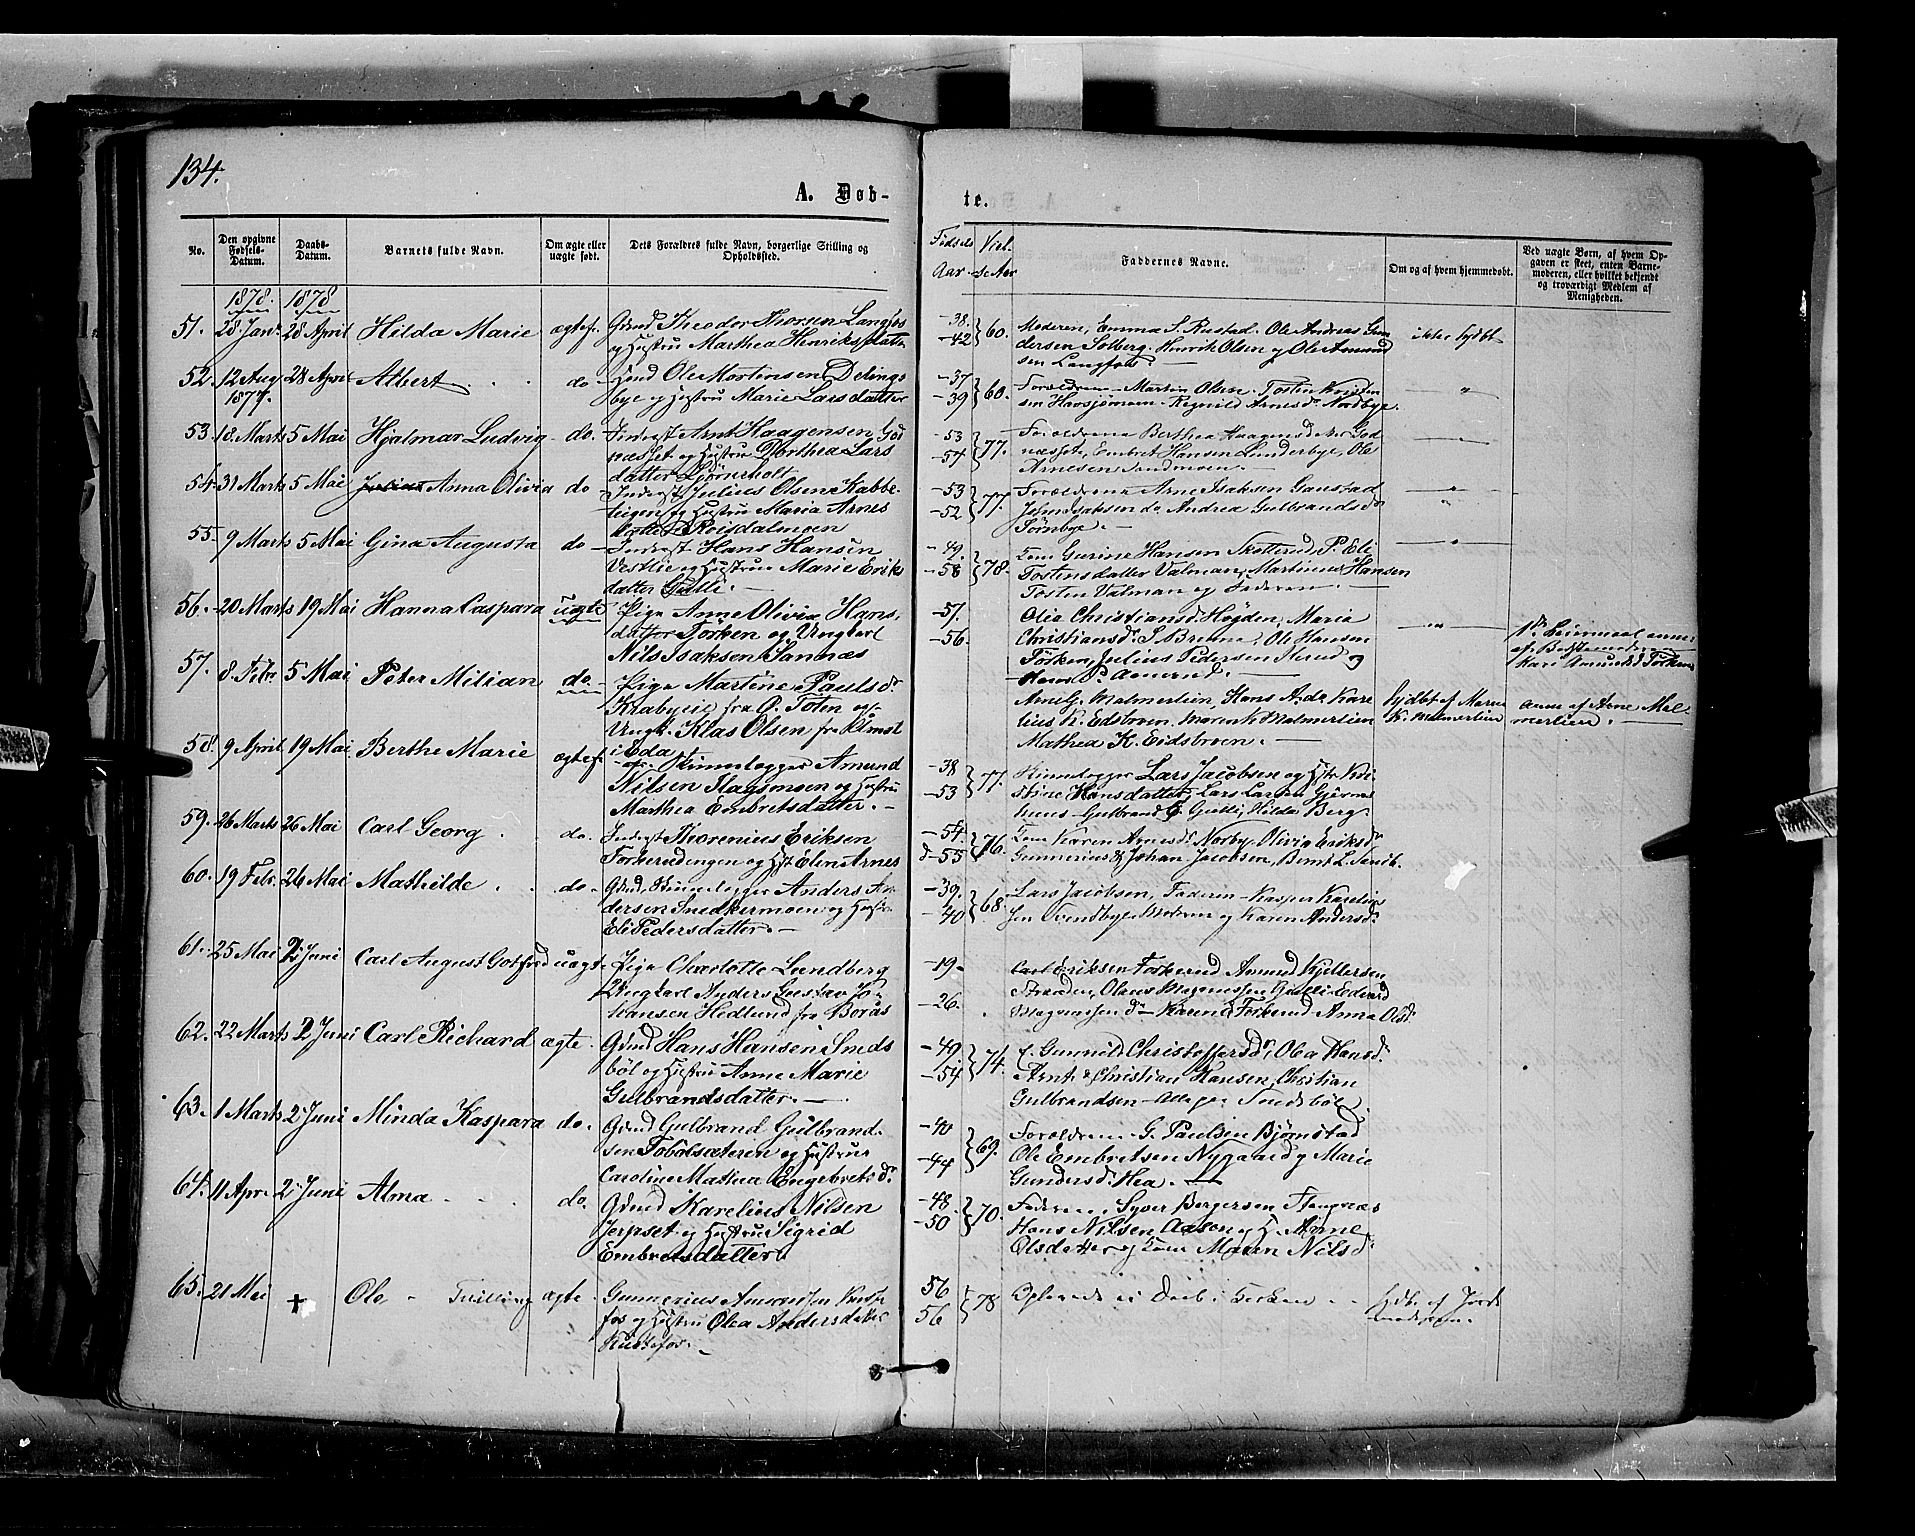 134.
A. Døb-
te.
No.
Den opgivne Fødsels-Datum.
Daabs-Datum.
Barnets fulde Navn.
Om ægte eller uægte født.
Dets Forældres fulde Navn, borgerlige Stilling og Opholdssted.
Fødsels Aar
Viel-se Aar
Faddernes Navne.
Om og af hvem hjemmedøbt.
Ved uægte Børn, af hvem Opgaven er skeet, enten Barnemoderen, eller hvilket bekjendt og troværdigt Medlem af Menigheden.
1878. 1878
51. 28 Jan. 28 April Hilda Marie ægtef. Gdmd Theodor Thorsen Langfos
og Hustru Marthea Henriksdatter
-38. -42 } 60.
Moderen, Emma S. Rustad. Ole Andreas Gun
dersen Solberg. Henrik Olsen og Ole Amund
sen Langfos. —
ikke hjdbt
52. 12 Aug. 1877. 28 April Albert do Ole Mortensen Delings
bye og Hustru Marie Larsdatter
-37 -39 } 60.
Forældrene - Martin Olsen. Tosten
sen Regnild Arnesdr Nordbye.
"
53. 18. Marts 5 Mai Hjalmar Ludvig do. Inderst Arnt Haagensen God
næsset og Hustru Dorthea Lars
datter
-53 -54 } 77.
Forældrene Berthea Haagensdatter God
næsset, Embret Hansen Lunderbye, Ole
Arnesen Sandmoen. —
"
54. 31 Marts 5 Mai Anna Olivia do Inderst Julius Olsen Kabbe-
teigen og Hustru Maria Arnes
datter Roisdalmoen
-53 -52 } 77.
Forældrene Arne Isaksen Gaustad
Andrea Gulbrandsdr
"
55. 9 Marts 5 Mai Gina Augusta do Inderst Hans Hansen
Vestlie og Hustru Marie Eriks
datter Gutli. —
-49. -58 } 78.
Gurine Hansen Skotterud, P. Eli
Tostensdatter Valman, Martinus Hansen
Tosten Valman og Faderen —
"
56. 20 Marts 19 Mai Hanna Caspara uægte Pige Anne Olivia Hans-
datter Torken og Ungkarl
Nils Isaksen Sannæs
-57. -56.
Olia Christiansdr Høgden, Maria
Christiansdr S Brenna, Ole Hansen
Torken, Julius Pedersen og
"
1ste Leiermaal anm.
af Bestemoderen
Kari Amundsdr Torken
57. 8. Febr. 5 Mai Peter Milian do Pige Martine Paulsdr
fra Ø. Toten og
Ungk. Klas Olsen fra
i Eda
Arne G. Malmerlien, Hans A. Kare
lius K. Eidsbroen. Maren K Malmerlien
Mathea K. Eidsbroen. —
hjdbt af Maren
K. Malmerlien
anm af Arne Mal-
merlien. —
58. 9 April 19 Mai Berthe Marie ægtef Amund
Nilsen Hagemoen og Hustru
Marthea Embretsdatter. —
-38 -53 } 77.
Lars Jacobsen og
Hansdatter, Lars Larsen
Gulbrand Gutli, Hilda Berg
59. 26 Marts 26 Mai Carl Georg do. Inderst Thorenius Eriksen
Torkerudengen og Hst Elen Arnes
-54 d-55 } 76.
Karen Arnesdr Norby, Olivia Eriksdr
Gunnerius & Johan Jacobsen, Bernt L.
60. 19 Febr. 26 Mai Mathilde do. Gdmd, Anders An
dersen Snedkermoen og Hustru
Eli Pedersdatter. —
-39. -40 } 68.
Lars Jacobsen, Faderen Kasper Kareliu
sen Svendbye, Moderen og Karen Andersdr
61. 25 Mai 2 Juni Carl August Gotfred uægt. Pige Charlotte Lundberg
Ungkarl Anders Gustav Jo-
hansen Hedlund fra Borås
-19. -26.
Carl Eriksen Torkerud Amund Kjellersen
Stranden, Olaus Magnussen Gutli Edvard
Magnussen do Karen E Torkerud Anna Olsdr
62. 22 Marts 2 Juni Carl Richard ægte. Gdmd Hans Hansen Sneds
böl og Hustru Anne Marie
Gulbrandsdatter. —
-49 -54 } 74.
f. Gunnild Christoffersdr, Olea Hansdr
Arnt & Christian Hansen, Christian
Gulbrandsen - Alle paa Snedsböl.
63. 1 Marts 2 Juni Minda Kaspara do. Gdmd Gulbrand Gulbrand-
sen Tobolsæteren og Hustru
Caroline Mathea Engebretsdr
-40 -44 } 69.
Forældrene. G. Paulsen Bjørnstad
Ole Embretsen Nygaard og Marie
Gundersdr Hea. —
64. 11 Apr. 2 Juni Alma do. Gdmd Karelius Nilsen
Jerpset og Hustru Sigrid
Embretsdatter
-48 -50 } 70.
Faderen, Syver Bergersen Stangnæs
Hans Nilsen Aasen og H. Anne
Olsdatter og Maren Nilsdr
65. 21 Mai + Ole - Tvilling ægte. Gunnerius Amundsen Kuste
fos og Hustru Olea Andersdatter
Kustefos. —
56 56 } 78
Daab i Kirken
hjdbt af Jord-
moderen.